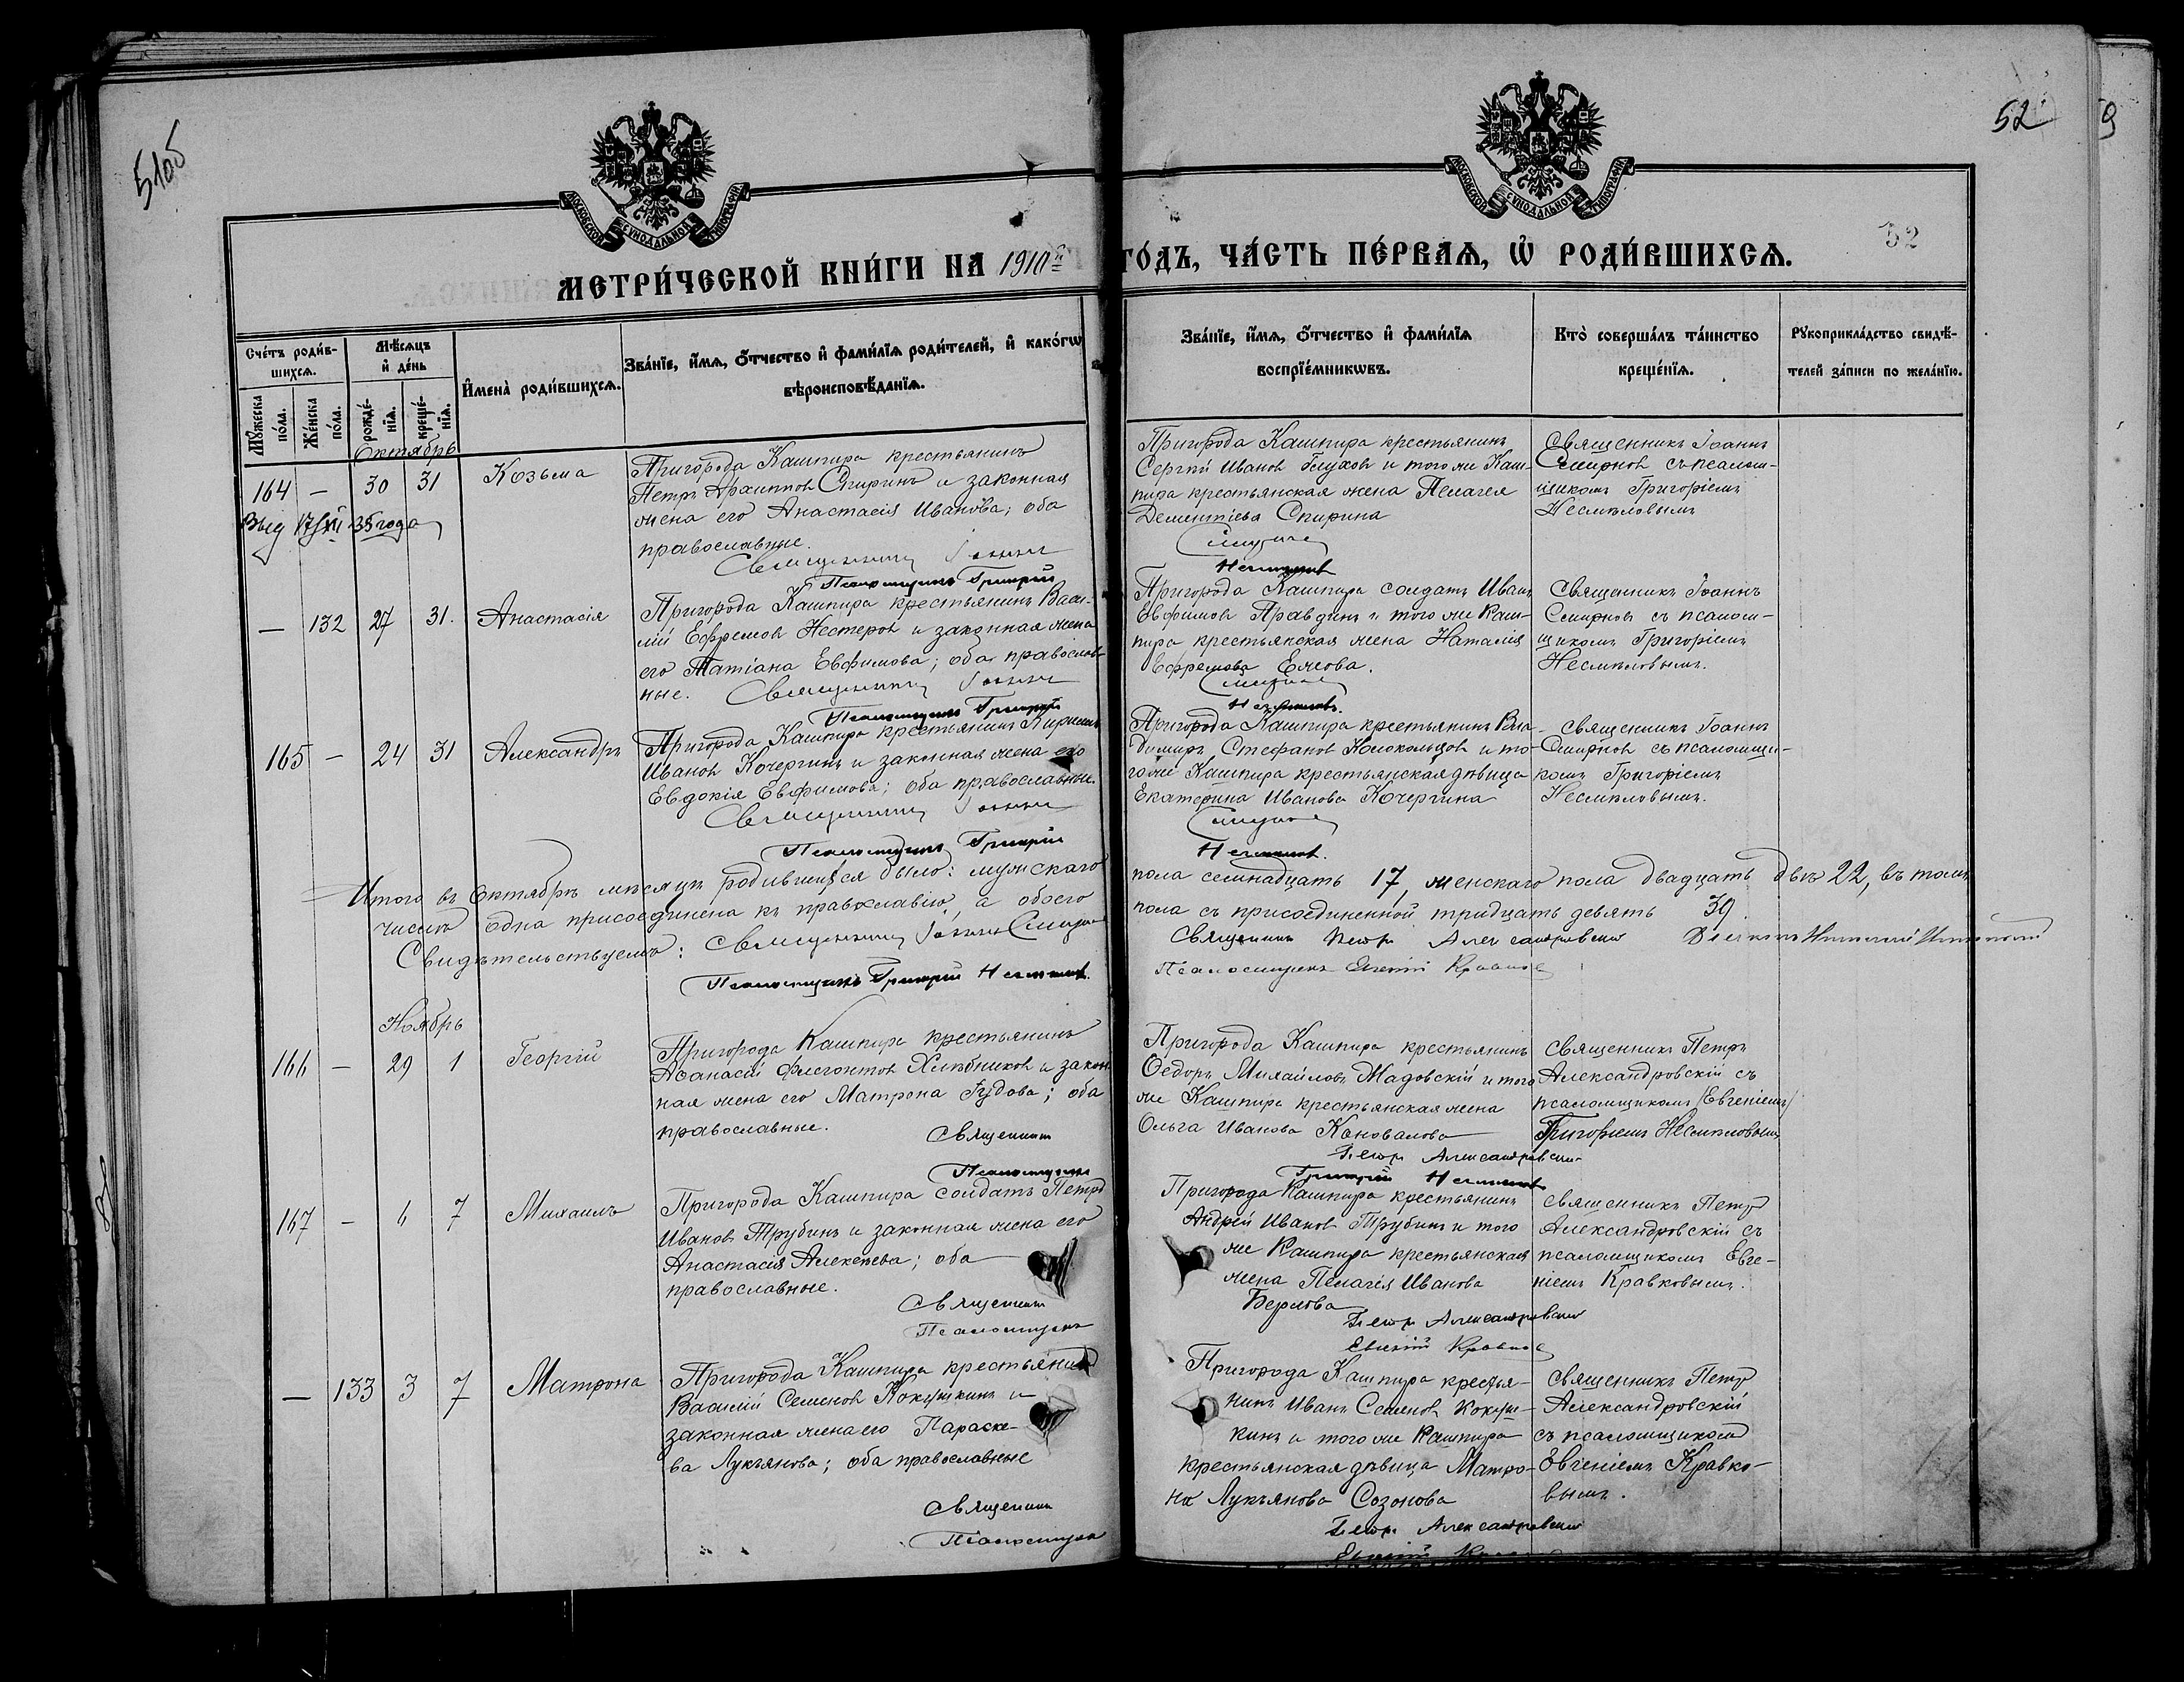 52
МОСКОВСКОЙ СѴНОДАЛЬНОЙ ТИПОГРАФІИ
МОСКОВСКОЙ СѴНОДАЛЬНОЙ ТИПОГРАФІИ
52
МЕТРИ́ЧЕСКОЙ КНИ́ГИ НА 1910й ГО́ДЪ, ЧА́СТЬ ПЕ́РВАѦ, Ѡ҆ РОДИ́ВШИХСѦ.
Сче́тъ роди́в-
шихсѧ.
Мꙋ́жеска по́ла.
Же́нска по́ла.
Мѣ́сѧцъ и҆ де́нь
рожде́-
нїѧ.
креще́-
нїѧ.
И҆мена̀ роди́вшихсѧ.
Зва́нїе, и҆́мѧ, ѻ҆́тчество и҆ фами́лїѧ роди́телей, и҆ како́гѡ
вѣроисповѣ́данїѧ.
Зва́нїе, и҆́мѧ, ѻ҆́тчество и҆ фами́лїѧ
воспрїе́мникѡвъ.
Кто̀ соверша́лъ та́инство
креще́нїѧ.
Рꙋкоприкла́дство свидѣ́-
телей за́писи по жела́нїю.
Октябрь
164 — 30 31 Козьма
Пригорода Кашпира крестьянинъ
Петръ Архиповъ Спиринъ и законная
жена его Анастасія Иванова; оба
православные.
Священникъ Іоаннъ Смирновъ
Псаломщикъ Григорій Несмѣловъ
Пригорода Кашпира крестьянинъ
Сергій Ивановъ Глуховъ и того же Каш-
пира крестьянская жена Пелагея
Дементіева Спирина
Священникъ Іоаннъ
Смирновъ съ псалом-
щикомъ Григоріемъ
Несмѣловымъ
— 132 27 31. Анастасія
Пригорода Кашпира крестьянинъ Васи-
лій Ефремовъ Нестеровъ и законная жена
его Татіана Евфимова; оба православ-
ные. Священникъ Іоаннъ Смирновъ
Псаломщикъ Григорій Несмѣловъ.
Пригорода Кашпира солдатъ Иванъ
Евфимовъ Правдинъ и того же Каш-
пира крестьянская жена Наталія
Ефремова Ежова.
Священникъ Іоаннъ
Смирновъ съ псалом-
щикомъ Григоріемъ
Несмѣловымъ.
165 — 24 31 Александръ
Пригорода Кашпира крестьянинъ Кириллъ
Ивановъ Кочергинъ и законная жена его
Евдокія Евфимова; оба православные.
Священникъ Іоаннъ Смирновъ
Псаломщикъ Григорій Несмѣловъ.
Пригорода Кашпира крестьянинъ Вла-
димиръ Стефановъ Колокольцовъ и то-
го же Кашпира крестьянская дѣвица
Екатерина Иванова Кочергина
Священникъ Іоаннъ
Смирновъ съ псаломщи-
комъ Григоріемъ
Несмѣловымъ.
Итого въ Октябрѣ мѣсяцѣ родившихся было: мужскаго пола семнадцать 17, женскаго пола двадцать двѣ 22, въ томъ
числѣ одна присоединена къ православію, а обоего пола съ присоединенной тридцать девять 39.
Свидѣтельствуемъ: Священникъ Іоаннъ Смирновъ Священникъ Петръ Александровскій
Псаломщикъ Григорій Несмѣловъ. Псаломщикъ Евгеній Кравковъ
Ноябрь
166 — 29 1 Георгій
Пригорода Кашпира крестьянинъ
Аѳанасій Флегонтовъ Хлѣбниковъ и закон-
ная жена его Матрона Гудова; оба
православные.
Священникъ Петръ Александровскій
Псаломщикъ Григорій Несмѣловъ
Пригорода Кашпира крестьянинъ
Ѳедоръ Михайловъ Жадовскій и того
же Кашпира крестьянская жена
Ольга Иванова Коновалова
Священникъ Петръ
Александровскій съ
псаломщикомъ /Евгеніемъ/
Григоріемъ Несмѣловымъ
167 — 6 7 Михаилъ
Пригорода Кашпира солдатъ Петръ
Ивановъ Трубинъ и законная жена его
Анастасія Алексѣева; оба
православные.
Священникъ Петръ Александровскій
Псаломщикъ Евгеній Кравковъ
Пригорода Кашпира крестьянинъ
Андрей Ивановъ Трубинъ и того
же Кашпира крестьянская
жена Пелагія Иванова
Священникъ Петръ
Александровскій съ
псаломщикомъ Евге-
ніемъ Кравковымъ.
— 133 3 7 Матрона
Пригорода Кашпира крестьянинъ
Василій Семеновъ Кокушкинъ и
законная жена его Параске-
ва Лукьянова; оба православные
Священникъ Петръ Александровскій
Псаломщикъ Евгеній
Пригорода Кашпира крестья-
нинъ Иванъ Семеновъ Кокуш-
кинъ и того же Кашпира
крестьянская дѣвица Матро-
на Лукьянова Созонова
Священникъ Петръ
Александровскій
съ псаломщикомъ
Евгеніемъ Кравко-
вымъ.